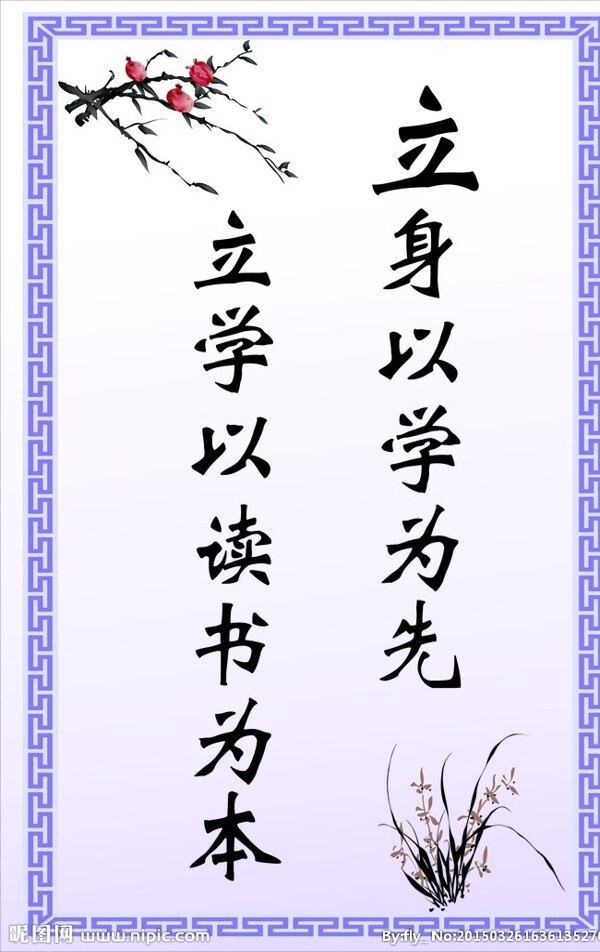 立身以学为先
立学以读书为本
昵图网 www.nipic.com
By:fly_ No:2015032616361352​70